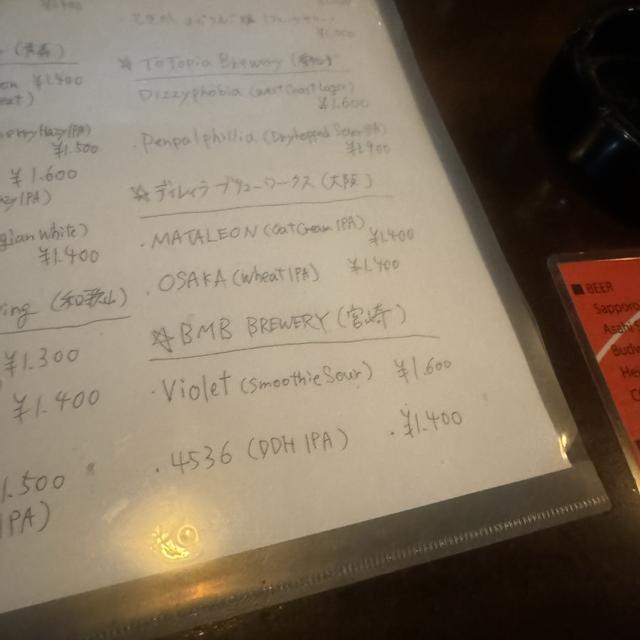 ¥1.400
¥1.500
¥1.600
gian White)
¥1.400
ing (和歌山)
¥1.300
¥1.400
1.500
IPA)
☆ ToTopia Brewery (愛知)
Dizzyphobia (West Coast Lager)
¥1.600
・Penpalphillia (Dryhopped Sour IPA)
¥1.900
☆ディレイラブリューワークス(大阪)
・MATALEON (Oat Cream IPA) ¥1.400
・OSAKA (Wheat IPA) ¥1.400
☆BMB BREWERY (宮崎)
・Violet (Smoothie Sour) ¥1.600
・4536 (DDH IPA) ・¥1.400
■ BEER
Sapporo
Asahi
Budw
He